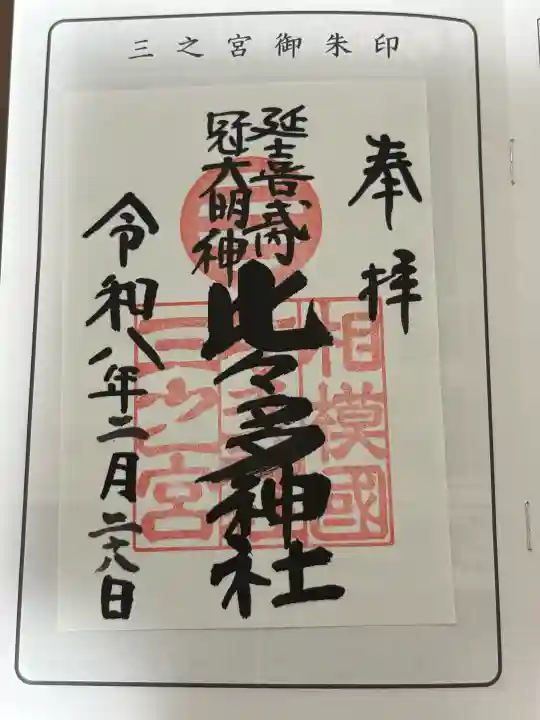 三之宮御朱印
奉拝
延喜式
冠大明神
比々多神社
相模國
三之宮
令和八年二月二十八日